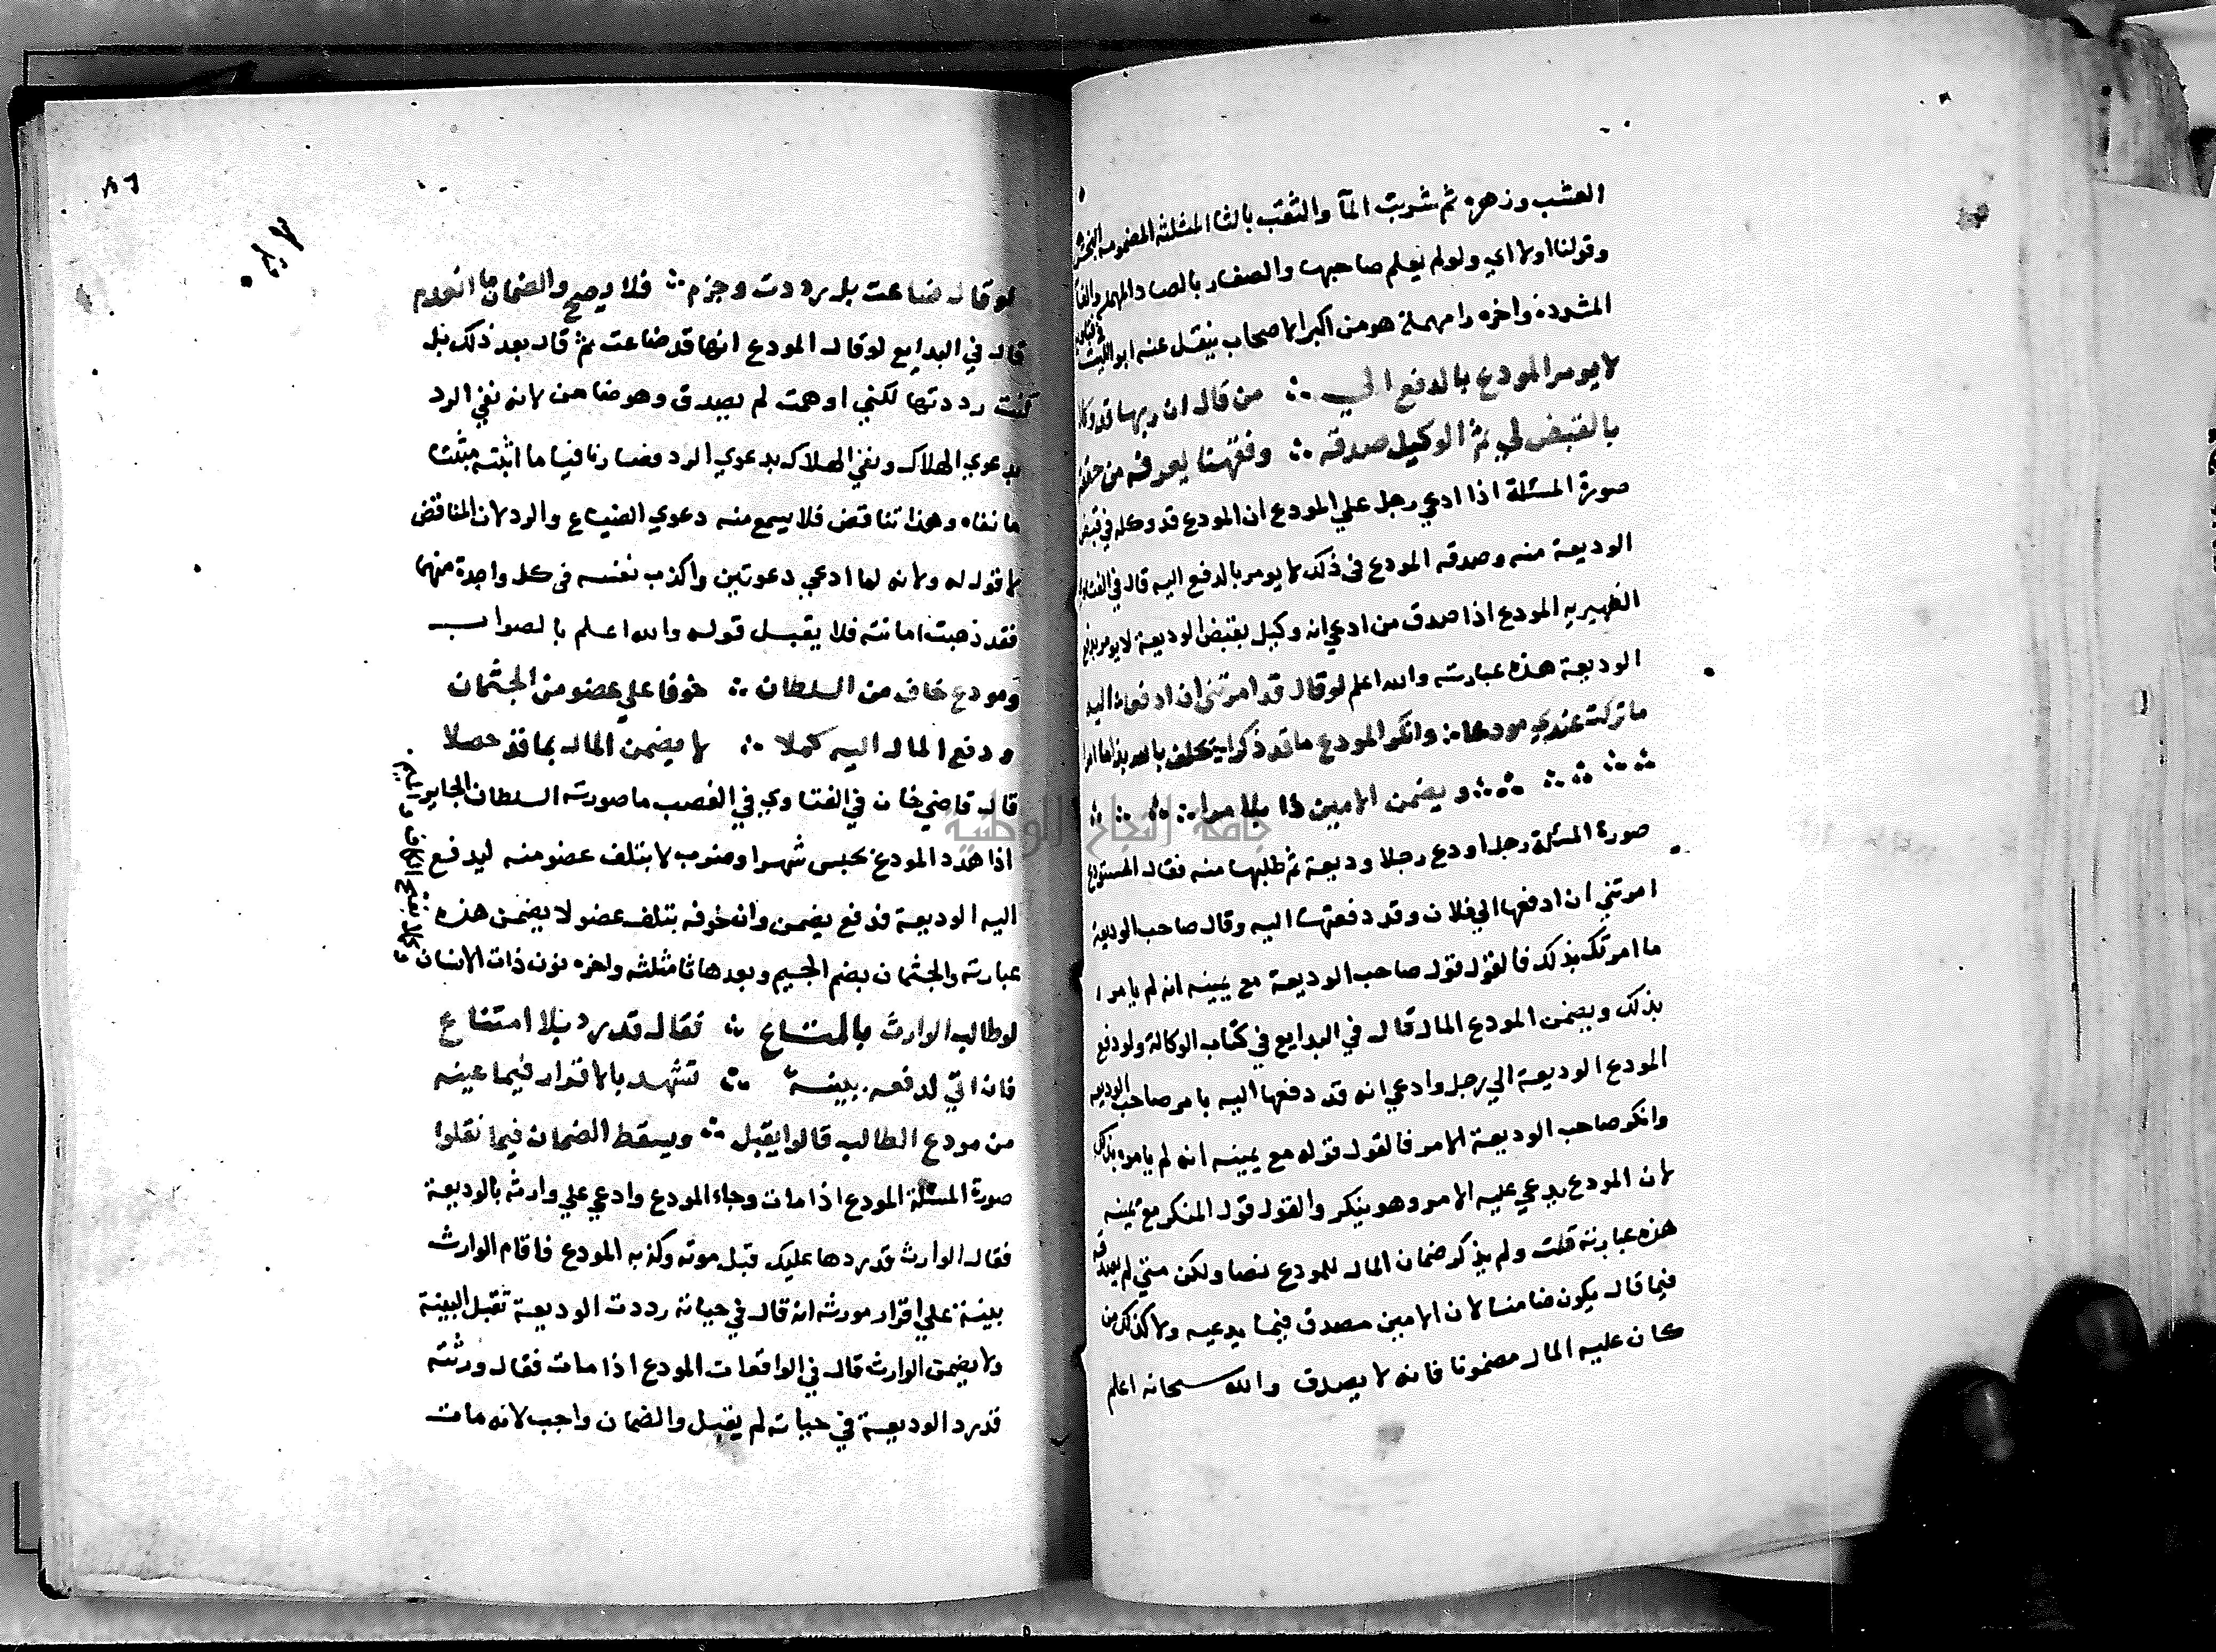 العشب وزهره ثم شربت المآ والثقب بالثا المثلثة المضمومة
وقولنا اولا اي ولو لم يعلم صاحبها والصفار بالصاد المهملة والفآ
المشددة واخره را مهملة هو من اكبر الاصحاب ينقل عنه ابو الليث
لا يومر المودع بالدفع الي ∴ من قال ان ربها قد وكلا
بالقبض لي ثم الوكيل صدقه ∴ وفقهنا يعرفه من حققه
صورة المسئلة اذا ادعي رجل علي المودع ان المودع قد وكله في قبض
الوديعة منه وصدقه المودع في ذلك لا يومر بالدفع اليه قال في الفتاوي
الظهيريه المودع اذا صدق من ادعي انه وكيل بقبض الوديعة لا يومر بدفع
الوديعة هذه عبارته والله اعلم لو قال قد امرتني ان ادفعا ∴ اليه
ما تركت عندي مودعا ∴ وانكر المودع ما قد ذكرا يحلف بالله بذا ما امرا
ويضمن الامين ذا بلا مرا ∴
صورة المسئلة رجل اودع رجلا وديعة ثم طلبها منه فقال المستودع
امرتني ان ادفعها الي فلان وقد دفعتها اليه وقال صاحب الوديعة
ما امرتك بذلك فالقول قول صاحب الوديعة مع يمينه انه لم يامره
بذلك ويضمن المودع المال قال في البدايع في كتاب الوكالة ولو دفع
المودع الوديعة الي رجل وادعي انه قد دفعها اليه بامر صاحب الوديعه
وانكر صاحب الوديعة الامر فالقول قوله مع يمينه انه لم يامره بذلك
لان المودع يدعي عليه الامر وهو ينكر والقول قول المنكر مع يمينه
هذه عبارته قلت ولم يذكر ضمان المال للمودع نصا ولكن متي لم يصدقه
فيما قال يكون ضامنا لان الامين مصدق فيما يدعيه ولا كذلك من
كان عليه المال مضمونا فانه لا يصدق والله سبحانه اعلم
٨٦
لو قال ضاعت بل رددت وجزم ∴ فلا يصح والضمان ما انعدم
قال في البدايع لو قال المودع انها قد ضاعت ثم قال بعد ذلك بل
كنت رددتها لكني اوهمت لم يصدق وهو ضامن لانه نفي الرد
بدعوي الهلاك ونفي الهلاك بدعوي الرد فصار نافيا ما اثبته مثبتا
ما نفاه وهذا تناقض فلا يسمع منه دعوي الضياع والرد لان المناقض
لا قول له ولانه لما ادعي دعوتين واكذب نفسه في كل واحدة منهما
فقد ذهبت امانته فلا يقبل قوله والله اعلم بالصواب
ومودع خاف من السلطان ∴ خوفا علي عضو من الجثمان
ودفع المال اليه كملا ∴ لا يضمن المال بما قد حصلا
قال قاضي خان في الفتاوي في الغصب ما صورته السلطان الجاير
اذا هدد المودع بحبس شهر او ضرب لا يتلف عضو منه ليدفع
اليه الوديعة فدفع يضمن وان خوفه بتلف عضو لا يضمن هذه
عبارته والجثمان بضم الجيم وبعدها ثا مثلثه واخره نون ذات الانسان
لو طالب الوارث بالمتاع ∴ فقال قد رد بلا امتناع
فان اتي لدفعه ببينة ∴ تشهد بالاقرار فيما عينه
من مودع الطالب قالوا يقبل ∴ ويسقط الضمان فيما نقلوا
صورة المسئلة المودع اذا مات وجاء المودع وادعي علي وارثه بالوديعة
فقال الوارث قد ردها عليك قبل موته وكذبه المودع فاقام الوارث
بينة علي اقرار مورثه انه قال في حياته رددت الوديعة تقبل البينة
ولا يضمن الوارث قال في الواقعات المودع اذا مات فقال ورثته
قد رد الوديعة في حياته لم يقبل والضمان واجب لانه مات
جامعة النجاح الوطنية